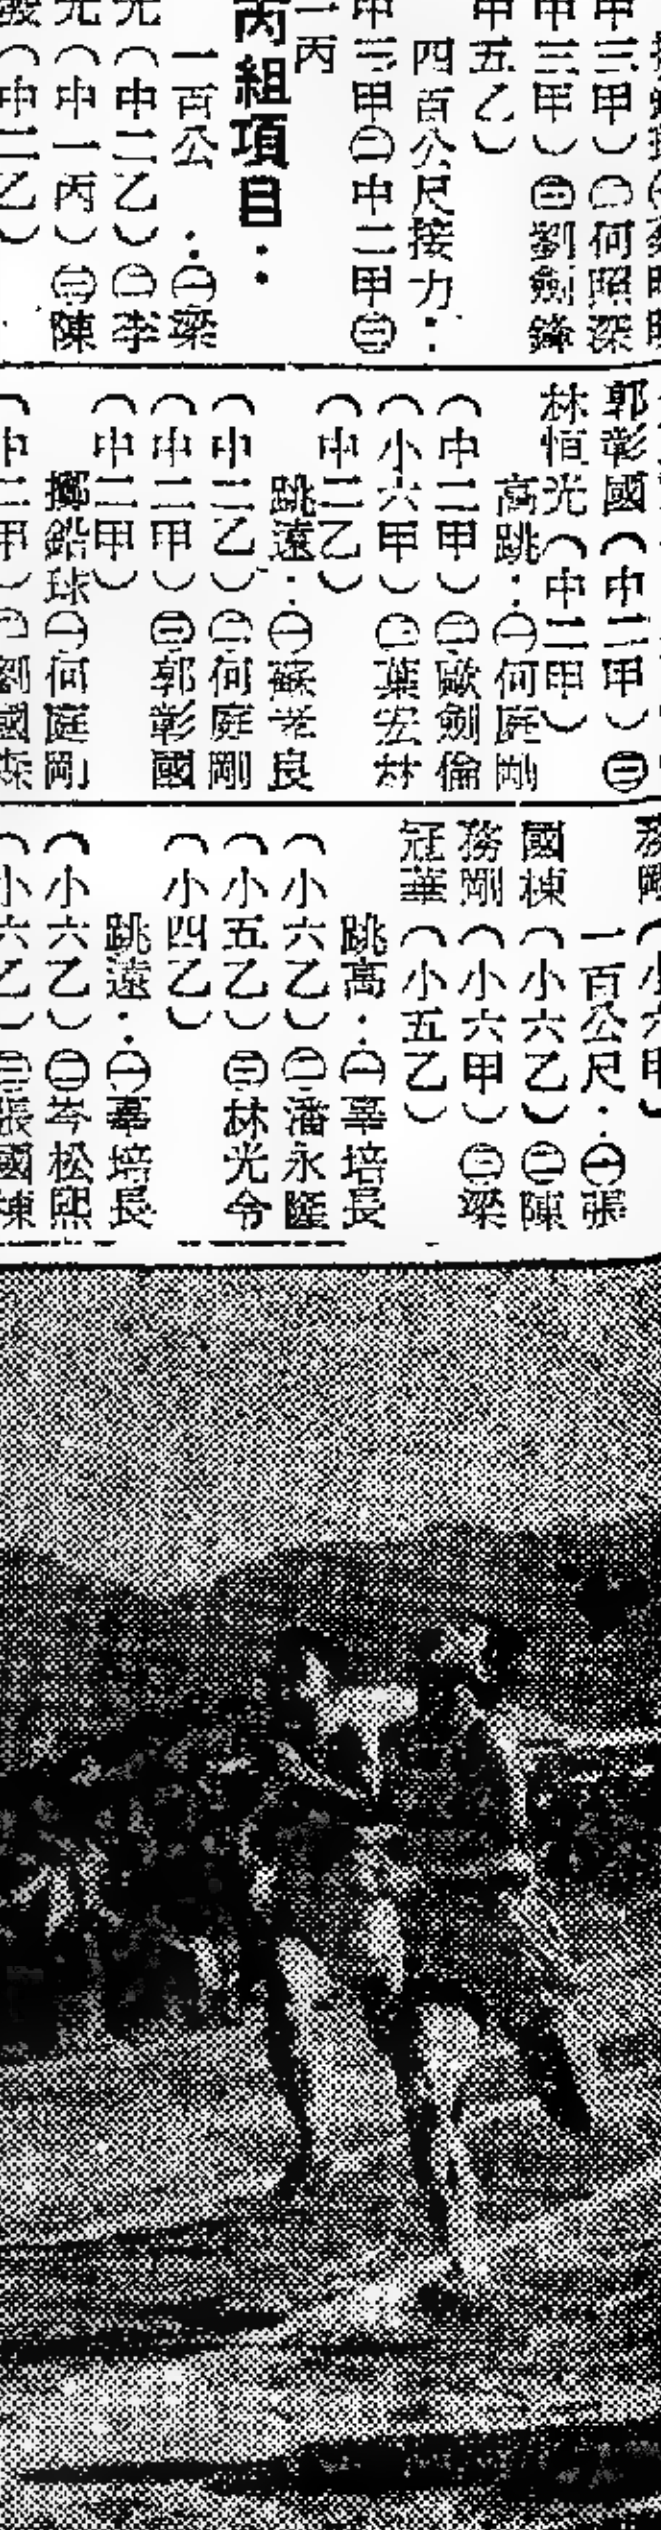 甲三甲）㊁何照深
甲三甲）㊂劉劍鋒
甲五乙）
四百公尺接力：
甲三甲㊁中二甲㊂
一丙
丙組項目：
一百公　：㊀梁
光（中二乙）㊁李
光（中一丙）㊂陳
（中二乙）
郭彰國（中二甲）㊂
林恒光（中二甲）
高跳：㊀何庭剛
（中二甲）㊁歐劍倫
（小六甲）㊂葉宏林
（中二乙）
跳遠：㊀蘇孝良
（中二乙）㊁何庭剛
（中二甲）㊂郭彰國
（中二甲）
擲鉛球㊀何庭剛
（中二甲）㊁劉國森
務剛（小六甲）
一百公尺：㊀張
國棟（小六乙）㊁陳
務剛（小六甲）㊂梁
冠華（小五乙）
跳高：㊀辜培長
（小六乙）㊁潘永隆
（小五乙）㊂林光令
（小四乙）
跳遠：㊀辜培長
（小六乙）㊁岑松熙
（小六乙）㊂張國棟